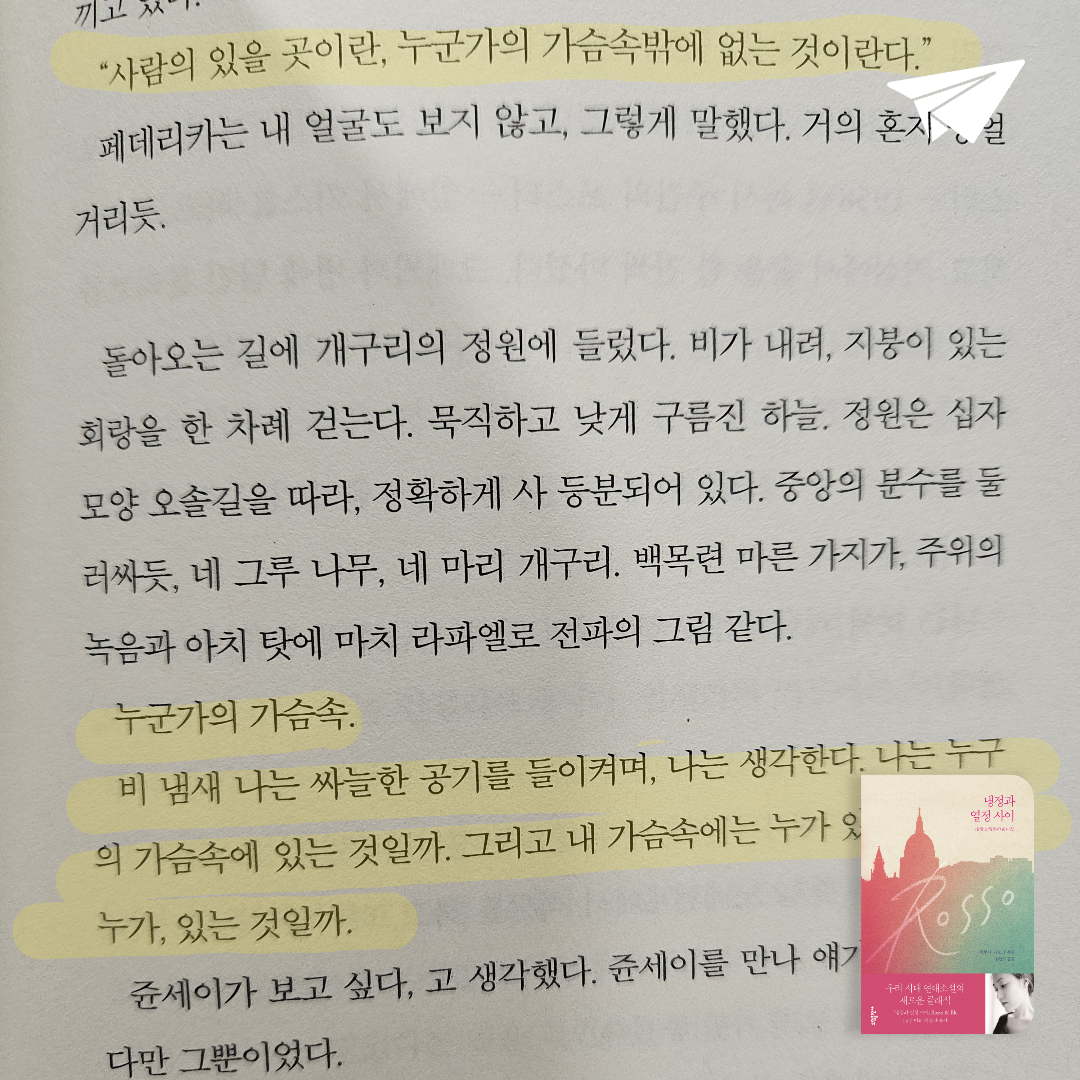 끼고 있다.
“사람의 있을 곳이란, 누군가의 가슴속밖에 없는 것이란다.”
페데리카는 내 얼굴도 보지 않고, 그렇게 말했다. 거의 혼자
거리듯.
돌아오는 길에 개구리의 정원에 들렀다. 비가 내려, 지붕이 있는
회랑을 한 차례 걷는다. 묵직하고 낮게 구름진 하늘. 정원은 십자
모양 오솔길을 따라, 정확하게 사 등분되어 있다. 중앙의 분수를 둘
러싸듯, 네 그루 나무, 네 마리 개구리. 백목련 마른 가지가, 주위의
녹음과 아치 탓에 마치 라파엘로 전파의 그림 같다.
누군가의 가슴속.
비 냄새 나는 싸늘한 공기를 들이켜며, 나는 생각한다. 나는 누구
의 가슴속에 있는 것일까. 그리고 내 가슴속에는 누가
누가, 있는 것일까.
쥰세이가 보고 싶다, 고 생각했다. 쥰세이를 만나
다만 그뿐이었다.
냉정과
열정 사이
Rosso
우리 시대 연애소설의
새로운 클래식